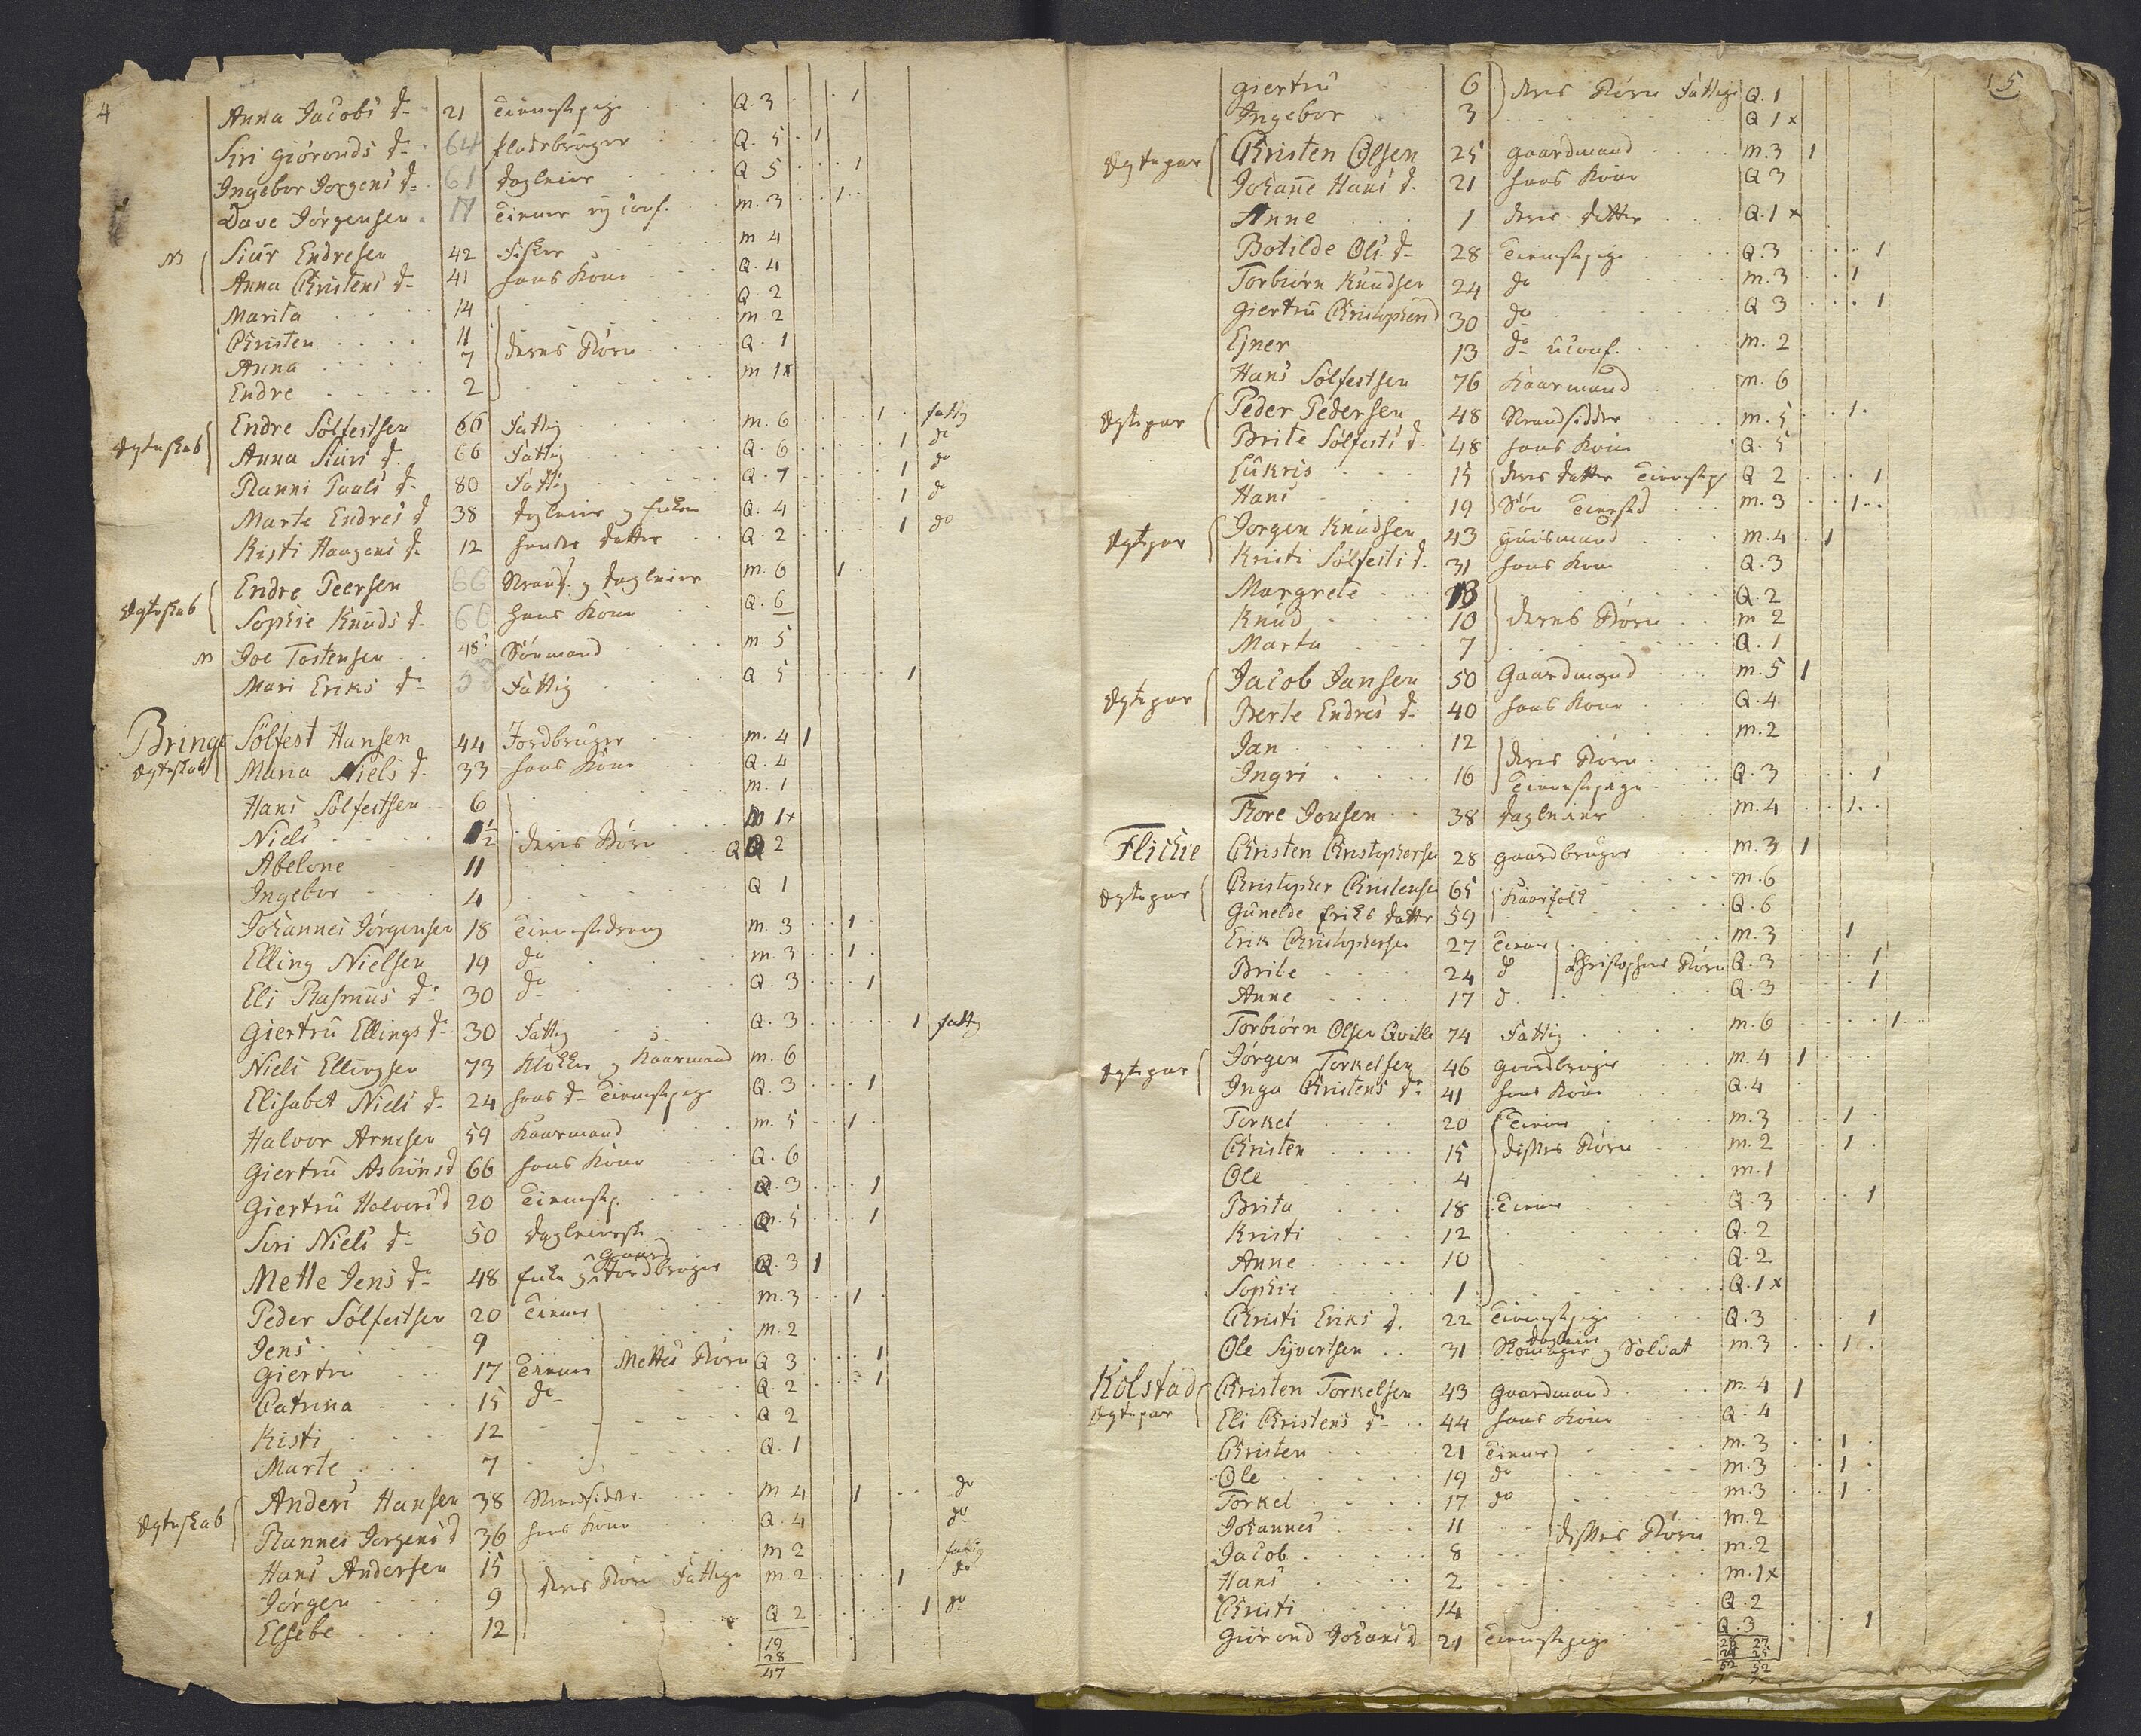 4
Anna Jacobs d- 21 Tienestpige Q. 3 1
Siri Giöronds d- 64 Q. 5 1
Ingebor Jorgens d- 61 dagleier Q. 5 1
Dave Jörgensen 17 Tiener m. 3 1
Siur Endresen 42 Fisker m. 4
Anna Christens d- 41 hans Kone Q. 4
Marita 14 Q. 2
Christen 11 m. 2
Anna 7 deres Börn Q. 1
Endre 2 m 1x
Endre Sölfestsen 66 Fattig m. 6 1 fattig
Ægteskab Anna Siurs d. 66 Fattig Q. 6 1 do
Ranni Paals d- 80 Fattig Q. 7 1 do
Marte Endres d 38 dagleier og Enke Q. 4 1 do
Kisti Haagens d- 12 hendes datter Q. 2 1 do
Endre Peersen 66 Strands. og dagleier m. 6 1
Ægteskab Sophie Knuds d- 66 hans Kone Q. 6
Joe Tostensen 48 m. 5
Mari Eriks d- Fattig Q 5 1
Bringe Sölfest Hansen 44 Jordbruger m. 4 1
Ægteskab Maria Niels d- 33 hans Kone Q. 4
Hans Sölfestsen 6 m. 1
Niels 1/2 deres Börn m 1x
Abelone 11 Q 2
Ingebor 4 Q 1
Johannes Jörgensen 18 Tienestdreng m. 3 1
Elling Nielsen 19 do m. 3 1
Eli Rasmus d- 30 do Q. 3 1
Giertru Ellings d- 30 Fattig Q. 3 1 fattig
Niels Ellingsen 73 Klokker og Kaarmand m. 6
Elisabet Niels d- 24 hans d- Tienestpige Q. 3 1
Halvor Arnesen 59 Kaarmand m. 5 1
Giertru Asbiöns d 66 hans Kone Q. 6
Giertru Halvors d 20 Tienestp. Q. 3 1
Siri Niels d- 50 Q. 5 1
Gaard
Mette Jens d- 48 Enke og Jordbruger Q. 3 1
Peder Sölfestsen 20 Tiener m. 3 1
Jens 9 m. 2
Giertru 17 Tiener Mettes Börn Q 3 1
Catrina 15 do Q. 2 1
Kisti 12 Q 2
Marte 7 Q. 1
Anders Hansen 38 Strandsidder m 4 1 do
Ægteskab Rannei Jorgens d 36 hans Kone Q. 4 do
Hans Andersen 15 m 2 fattig
Jörgen 9 deres Börn Fattige m. 2 1 do
Elsebe 12 Q 2 1 do
19
28
47
5
Giertru 6 deres Börn Fattige Q. 1
Ingebor 3 Q 1x
Ægtepar Christen Olsen 25 gaardmand m. 3 1
Johanne Hans d. 21 hans Kone Q 3
Anne 1 deres datter Q. 1x
Botilde Ols d- 28 Tienestpige Q. 3 1
Torbiörn Knudsen 24 do m. 3 1
Giertru Christophers d 30 do Q 3 1
Ejner 13 do uconf. m. 2
Hans Sölfestsen 76 Kaarmand m. 6
Ægtepar Peder Pedersen 48 Strandsidder m. 5 1
Brite Sölfests d. 48 hans Kone Q. 5
Lukris 15 deres datter Tienestp Q 2 1
Hans 19 Sön m. 3 1
Ægtepar Jorgen Knudsen 43 Huusmand m. 4 1
Kristi Sölfests d. 31 hans Kone Q. 3
Margrete 13 Q. 2
Knud 10 deres Börn m 2
Marta 7 Q. 1
Jacob Jansen 50 Gaardmand m. 5 1
Ægtepar Berte Endres d. 40 hans Kone Q. 4
Jan 12 deres Börn m. 2
Ingri 16 Tienestpige Q. 3 1
Tore Jonsen 38 dagleier m. 4 1
Flichie Christen Christophersen 28 gaardbruger m. 3 1
Ægtepar Christopher Christensen 65 Kaarfolk m. 6
Gunelde Eriks datter 59 Q. 6
Erik Christophersen 27 Tiener m. 3 1
Brite 24 do Christophers Börn Q. 3 1
Anne 17 d Q. 3 1
Torbiörn Olsen Qville 74 Fattig m. 6 1
Ægtepar Jörgen Torkelsen 46 gaardbruger m. 4 1
Inga Christens d- 41 hans Kone Q. 4
Torkel 20 Tiener m. 3 1
Christen 15 disses Börn m. 2 1
Ole 4 m. 1
Brita 18 Tiener Q. 3 1
Kristi 12 Q. 2
Anne 10 Q. 2
Sophie 1 Q. 1x
Christi Eriks d. 22 Tienestpige Q. 3 1
Ole Sjvertsen 31 og Soldat m. 3 1
Kolstad Christen Torkelsen 43 gaardmand m. 4 1
Ægtepar Eli Christens d- 44 hans Kone Q. 4
Christen 21 Tiener m. 3 1
Ole 19 do m. 3 1
Torkel 17 do m. 3 1
Johannes 11 disses Börn m. 2
Jacob 8 m. 2
Hans 2 m. 1x
Christi 14 Q. 2
Giörond Johans d 21 Tienestpige Q. 3 1
28 27
24 25
52 52